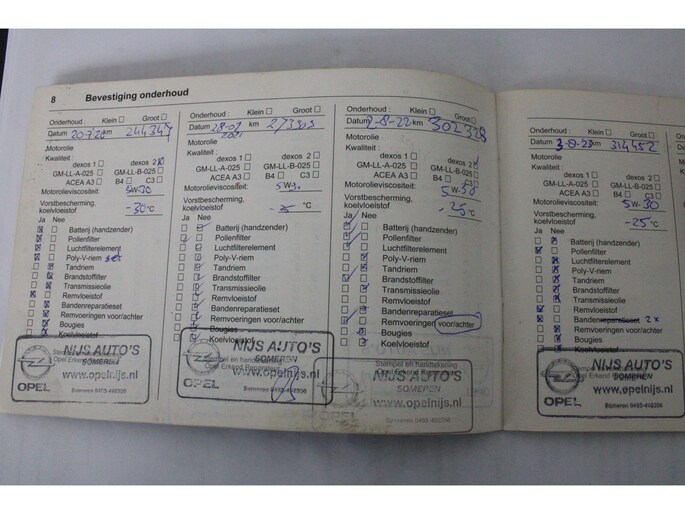 8 Bevestiging onderhoud
Onderhoud : Klein Groot
Datum 20-7-20 km 244347
Motorolie
Kwaliteit :
dexos 1 dexos 2
GM-LL-A-025 GM-LL-B-025
ACEA A3 B4 C3
Motorolieviscositeit: 5W-30
Vorstbescherming,
koelvloeistof -30 °C
Ja Nee
Batterij (handzender)
Pollenfilter
Luchtfilterelement
Poly-V-riem set
Tandriem
Brandstoffilter
Transmissieolie
Remvloeistof
Bandenreparatieset
Remvoeringen voor/achter
Bougies
Koelvloeistof
NIJS AUTO'S
SOMEREN
www.opelnijs.nl
OPEL Someren 0493-492206
Onderhoud : Klein Groot
Datum km 273303
Motorolie
Kwaliteit :
dexos 1 dexos 2
GM-LL-A-025 GM-LL-B-025
ACEA A3 B4 C3
Motorolieviscositeit: 5W-30
Vorstbescherming,
koelvloeistof -25 °C
Ja Nee
Batterij (handzender)
Pollenfilter
Luchtfilterelement
Poly-V-riem
Tandriem
Brandstoffilter
Transmissieolie
Remvloeistof
Bandenreparatieset
Remvoeringen voor/achter
Bougies
Koelvloeistof
Stempel en handtekening
Opel Erkend Reparateur
NIJS AUTO'S
SOMEREN
www.opelnijs.nl
OPEL Someren 0493-492206
Onderhoud : Klein Groot
Datum 2-8-22 km 302328
Motorolie
Kwaliteit :
dexos 1 dexos 2
GM-LL-A-025 GM-LL-B-025
ACEA A3 B4 C3
Motorolieviscositeit: 5W-30
Vorstbescherming,
koelvloeistof -25 °C
Ja Nee
Batterij (handzender)
Pollenfilter
Luchtfilterelement
Poly-V-riem
Tandriem
Brandstoffilter
Transmissieolie
Remvloeistof
Bandenreparatieset
Remvoeringen voor/achter
Bougies
Koelvloeistof
Stempel en handtekening
Opel Erkend Reparateur
NIJS AUTO'S
SOMEREN
www.opelnijs.nl
OPEL Someren 0493-492206
Onderhoud : Klein Groot
Datum km 314452
Motorolie
Kwaliteit :
dexos 1 dexos 2
GM-LL-A-025 GM-LL-B-025
ACEA A3 B4 C3
Motorolieviscositeit: 5W-30
Vorstbescherming,
koelvloeistof -25 °C
Ja Nee
Batterij (handzender)
Pollenfilter
Luchtfilterelement
Poly-V-riem
Tandriem
Brandstoffilter
Transmissieolie
Remvloeistof
Bandenreparatieset 2x
Remvoeringen voor/achter
Bougies
Koelvloeistof
NIJS AUTO'S
SOMEREN
www.opelnijs.nl
OPEL Someren 0493-492206